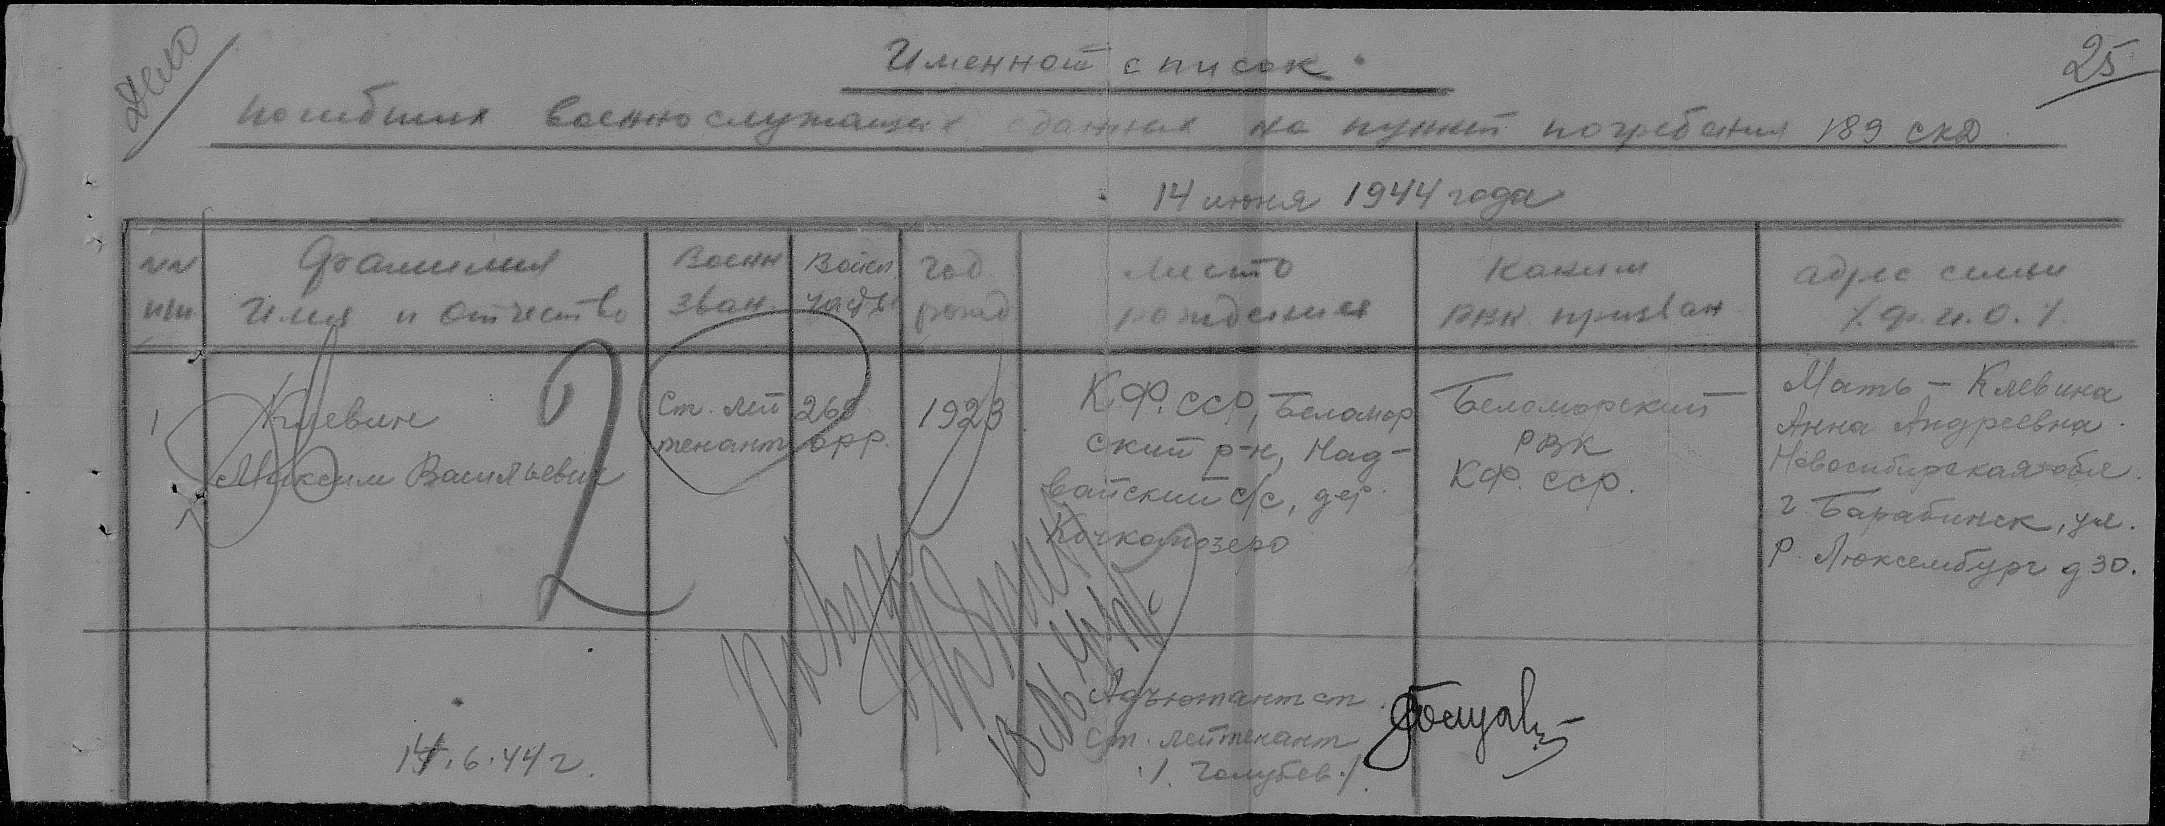 Дело
25
Именной список
погибших военнослужащих сданных на пункт погребения 189 скд
14 июня 1944 года
NN
пп
Фамилия
Имя и отчество
Воен
зван.
Войск
часть
год
рожд
место
рождения
Каким
РВК призван
адрес семьи
/Ф.И.О./
1
Клевин
Максим Васильевич
Ст. лей
тенант
268
орр.
1923
К.Ф.ССР, Беломор
ский р-н, Над-
вайский с/с, дер.
Кочкомозеро
Беломорский
РВК
КФ. ССР.
Мать – Клевина
Анна Андреевна.
Новосибирская обл.
г. Барабинск, ул.
Р. Люксембург д 30.
2
Адъютант ст.
Ст. лейтенант
/. Голубев./
14.6.44 г.